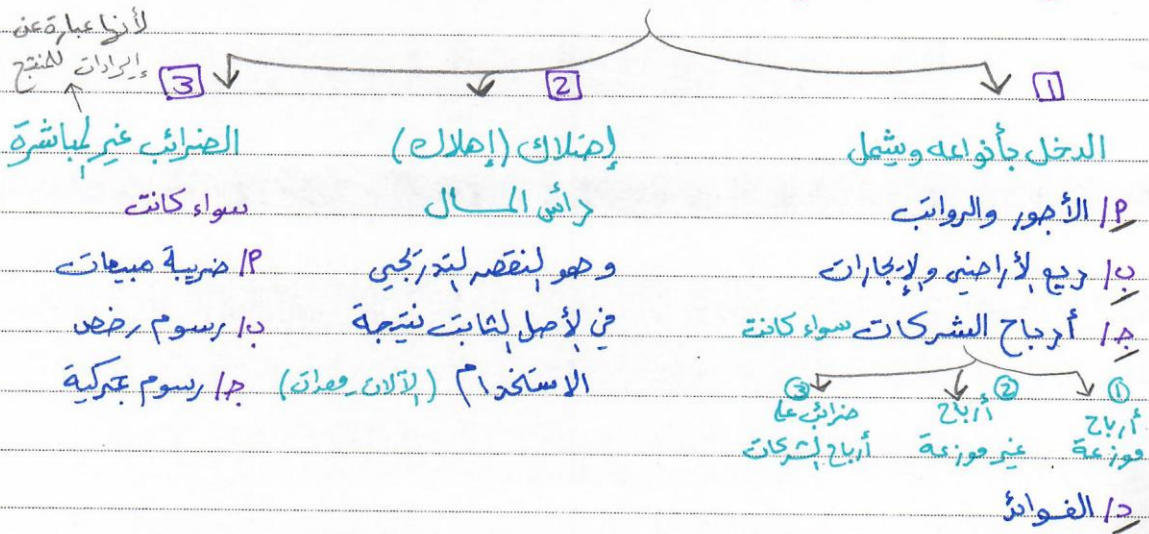 1
الدخل بأنواعه ويشمل
أ/ الأجور والرواتب
ب/ ريع الأراضي والإيجارات
ج/ أرباح الشركات سواء كانت
① أرباح موزعة
② أرباح غير موزعة
③ ضرائب على أرباح الشركات
د/ الفوائد
2
إهتلاك (إهلاك)
رأس المال
وهو النقص التدريجي
في الأصل الثابت نتيجة
الاستخدام (الآلات، معدات)
3
لأنها عبارة عن
إيرادات للمنتج
الضرائب غير المباشرة
سواء كانت
أ/ ضريبة مبيعات
ب/ رسوم رخص
ج/ رسوم جمركية